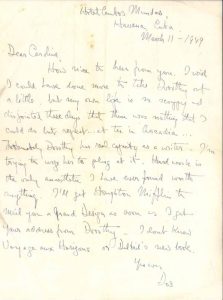 Hotel Ambos Mundos
Havana, Cuba
March 11 - 1949
Dear Carolina,
How nice to hear from you. I wish
I could have done more to take Dorothy out
a little but my own life is so
disjointed these days that there was nothing that I
could do but regret
Dorothy has real capacity as a writer - I'm
trying to urge her to plug at it. Hard work is
the only anaesthetic I have ever found worth
anything. I'll get Houghton Mifflin to
mail you a Grand Design as soon as I get
your address from Dorothy. I don't know
Voyage aux or new book.
Yours ever,
Dos